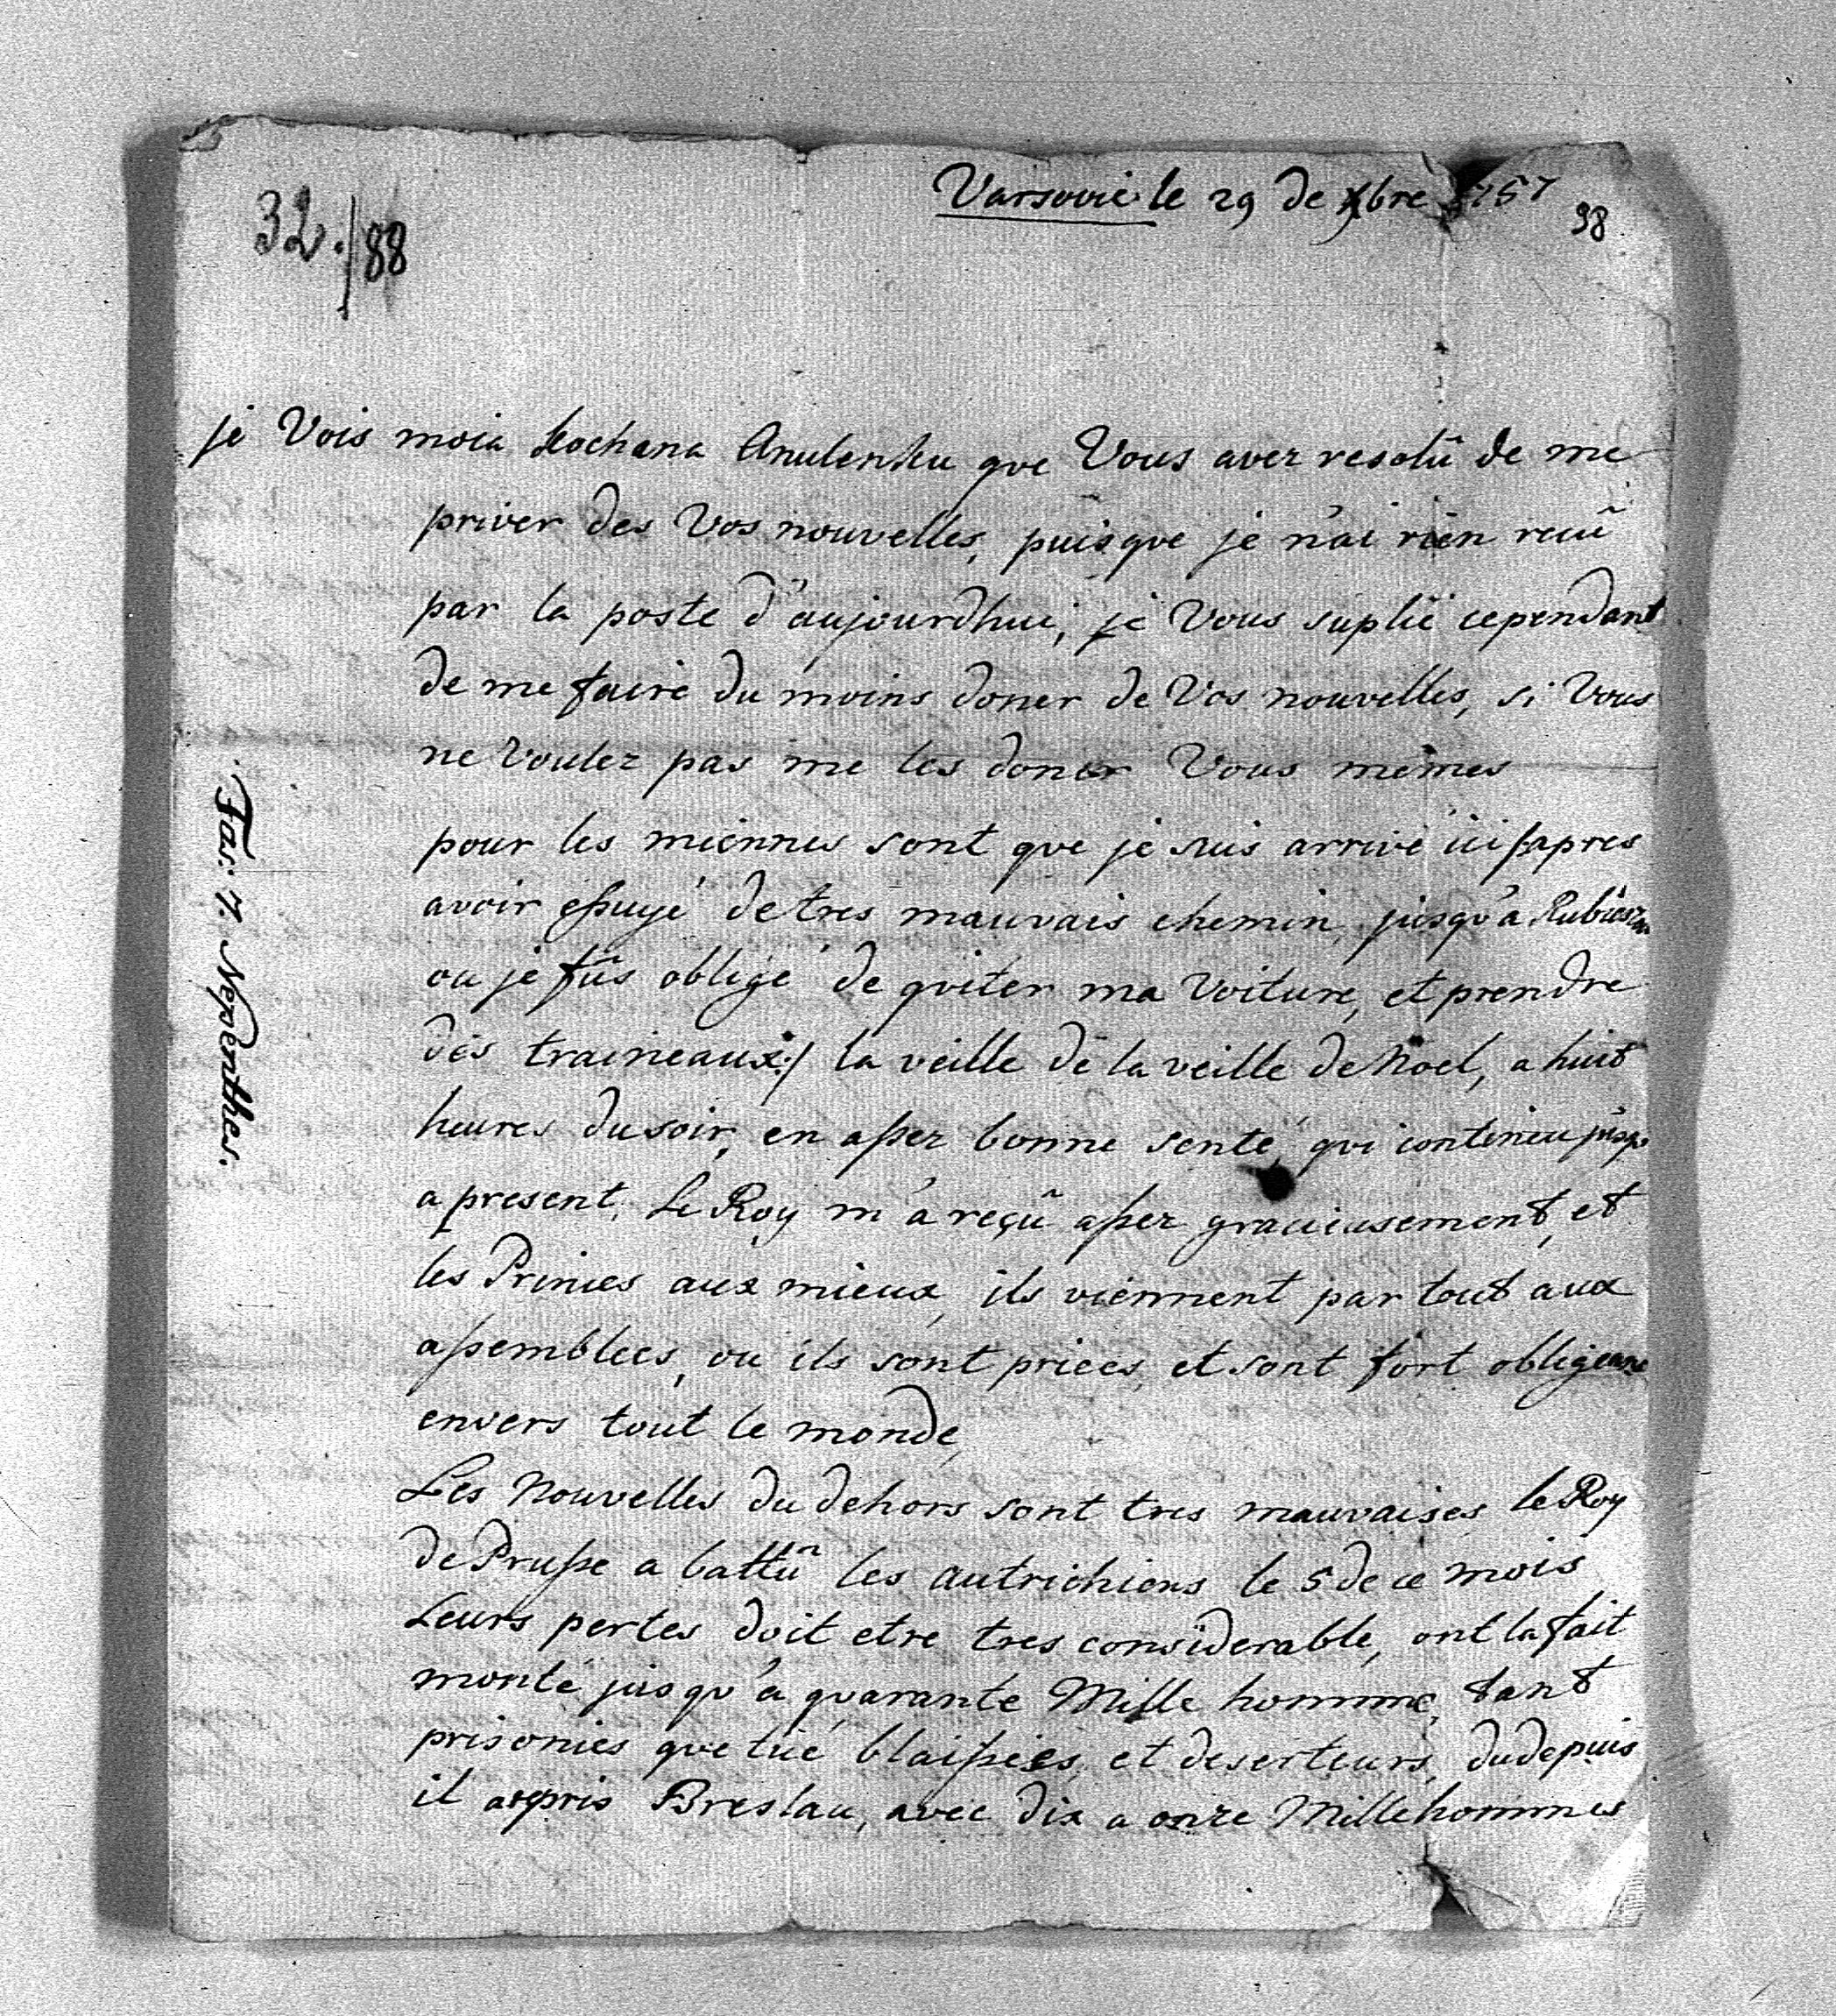 Varsovie le 29 de Xbre 1757
98
32./88
je Vois moia kochana Anulenku que Vous avez resolû de me
priver des Vos nouvelles, puisque je n'ai rien recû
par la poste d'aujourdhui, je Vous suplie cependant
de me faire du moins doner de Vos nouvelles, si Vous
ne Voulez pas me les doner Vous mêmes
pour les miennes sont que je suis arrivé ici /:apres
avoir eßuyé de tres mauvais chemin, jusqu'a
ou je fûs obligé de quiter ma Voiture, et prendre
des traineaux:/ la veille de la veille de Noel, a huit
heures du soir, en aßez bonne senté, qui contineu jusqu
a present, Le Roy m'a reçû aßez gracieusement, et
les Princes aux mieux, ils viennent par tout aux
aßemblees, ou ils sont priees, et sont fort obligeans
envers tout le monde,
Les Nouvelles du dehors sont tres mauvaises le Roy
de Prußse a battû les autrichiens le 5 de ce mois
Leurs pertes doit etre tres considerable, ont la fait
monté jusqu'a quarante Mille homme, tant
prisonies que tué blaißées, et deserteurs, dudepuis
il a pris Breslau, avec dix a onze Mille hommes
Fas: 7. Nepenthes.